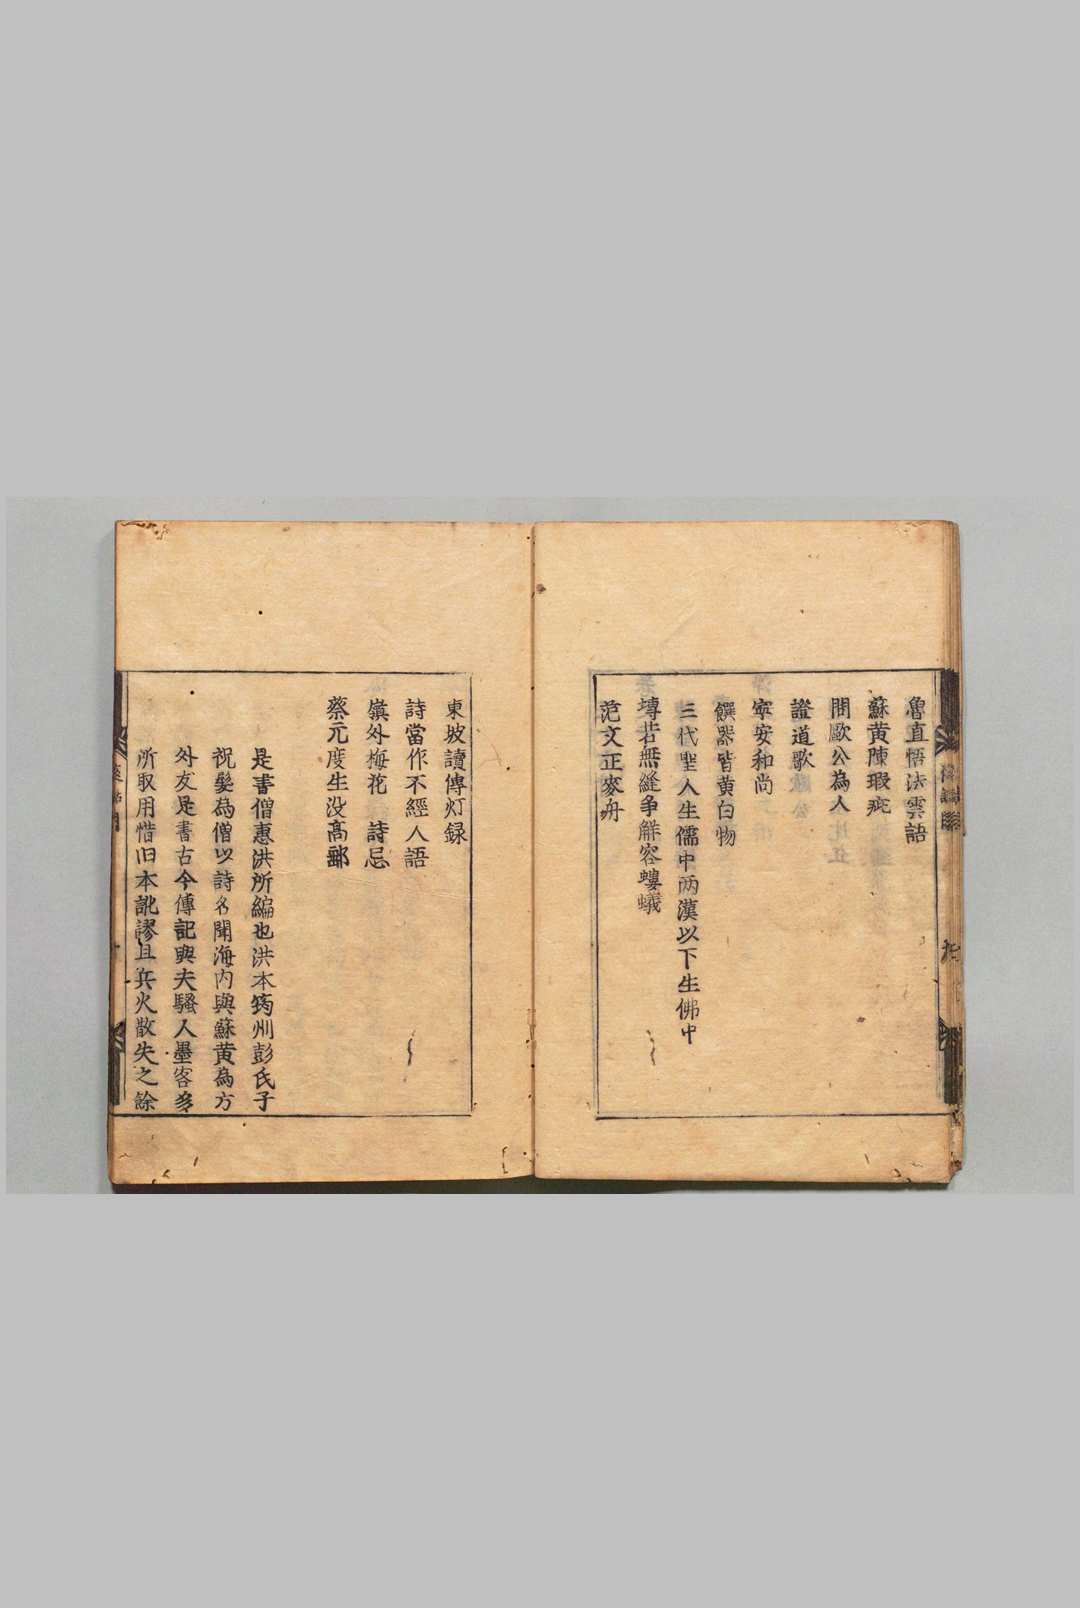 魯直悟法雲語
蘇黄陳瑕疵
問歐公為人
證道歌
寕安和尚
饌器皆黄白物
三代聖人生儒中两漢以下生佛中
塼若無縫争解容螻蟻
范文正麥舟
東坡讀傳灯録
詩當作不經人語
嶺外梅花 詩忌
蔡元度生没髙郵
是書僧惠洪所編也洪本筠州彭氏子
祝髮為僧以詩名聞海内與蘇黄為方
外友是書古今傳記與夫騷人墨客多
所取用惜旧本訛謬且兵火散失之餘